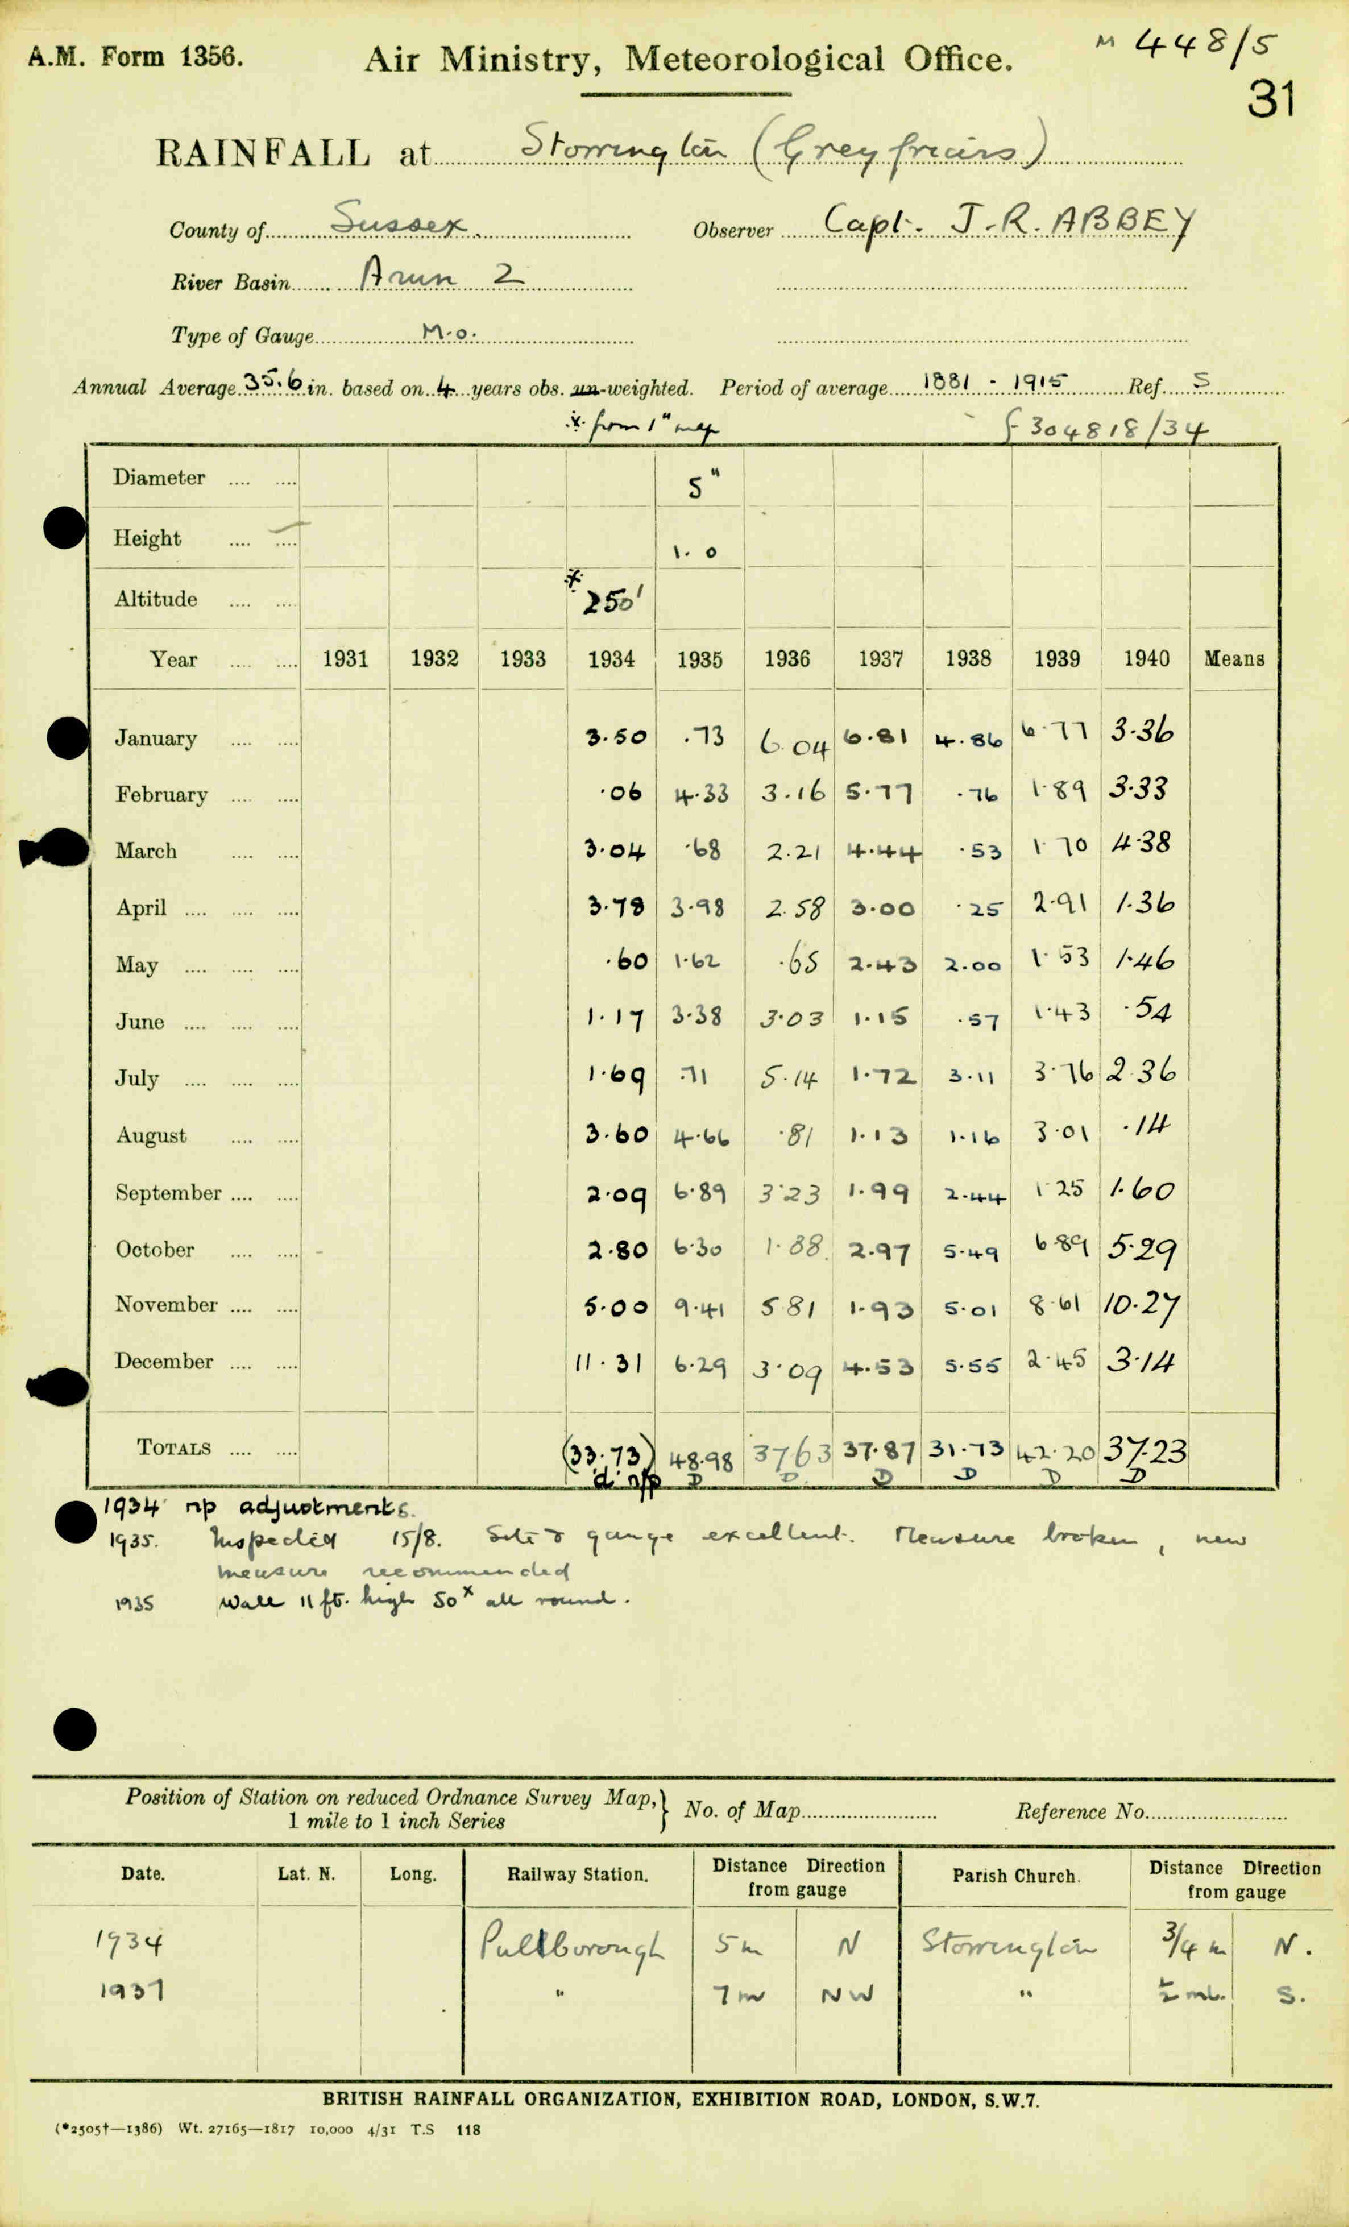 A.M. Form 1356. Air Ministry, Meteorological Office. M 448/5
31
RAINFALL at Storrington (Greyfriars)
County of Sussex. Observer Capt. J.R. ABBEY
River Basin Arun 2
Type of Gauge M.O.
Annual Average 35.6 in. based on 4 years obs. un-weighted. Period of average 1881 - 1915 Ref. S
* from 1" map f 304818/34
Diameter 5"
Height 1.0
Altitude * 250'
Year 1931 1932 1933 1934 1935 1936 1937 1938 1939 1940 Means
January 3.50 .73 6.04 6.81 4.86 6.77 3.36
February .06 4.33 3.16 5.77 .76 1.89 3.33
March 3.04 .68 2.21 4.44 .53 1.70 4.38
April 3.78 3.98 2.58 3.00 .25 2.91 1.36
May .60 1.62 .65 2.43 2.00 1.53 1.46
June 1.17 3.38 3.03 1.15 .57 1.43 .54
July 1.69 .71 5.14 1.72 3.11 3.76 2.36
August 3.60 4.66 .81 1.13 1.16 3.01 .14
September 2.09 6.89 3.23 1.99 2.44 1.25 1.60
October 2.80 6.30 1.88 2.97 5.49 6.89 5.29
November 5.00 9.41 5.81 1.93 5.01 8.61 10.27
December 11.31 6.29 3.09 4.53 5.55 2.45 3.14
TOTALS (33.73) 48.98 37.63 37.87 31.73 42.20 37.23
d. n/p D D D D D D
1934 np adjustments.
1935. Inspected 15/8. Site & gauge excellent. Measure broken, new
measure recommended
1935 Wall 11 ft. high 50x all round.
Position of Station on reduced Ordnance Survey Map, 1 mile to 1 inch Series } No. of Map Reference No.
Date. Lat. N. Long. Railway Station. Distance Direction from gauge Parish Church. Distance Direction from gauge
1934 Pullborough 5 m N Storrington 3/4 m N.
1937 " 7 m NW " 1/2 ml. S.
BRITISH RAINFALL ORGANIZATION, EXHIBITION ROAD, LONDON, S.W.7.
(*2505†—1386) Wt. 27165—1817 10,000 4/31 T.S 118